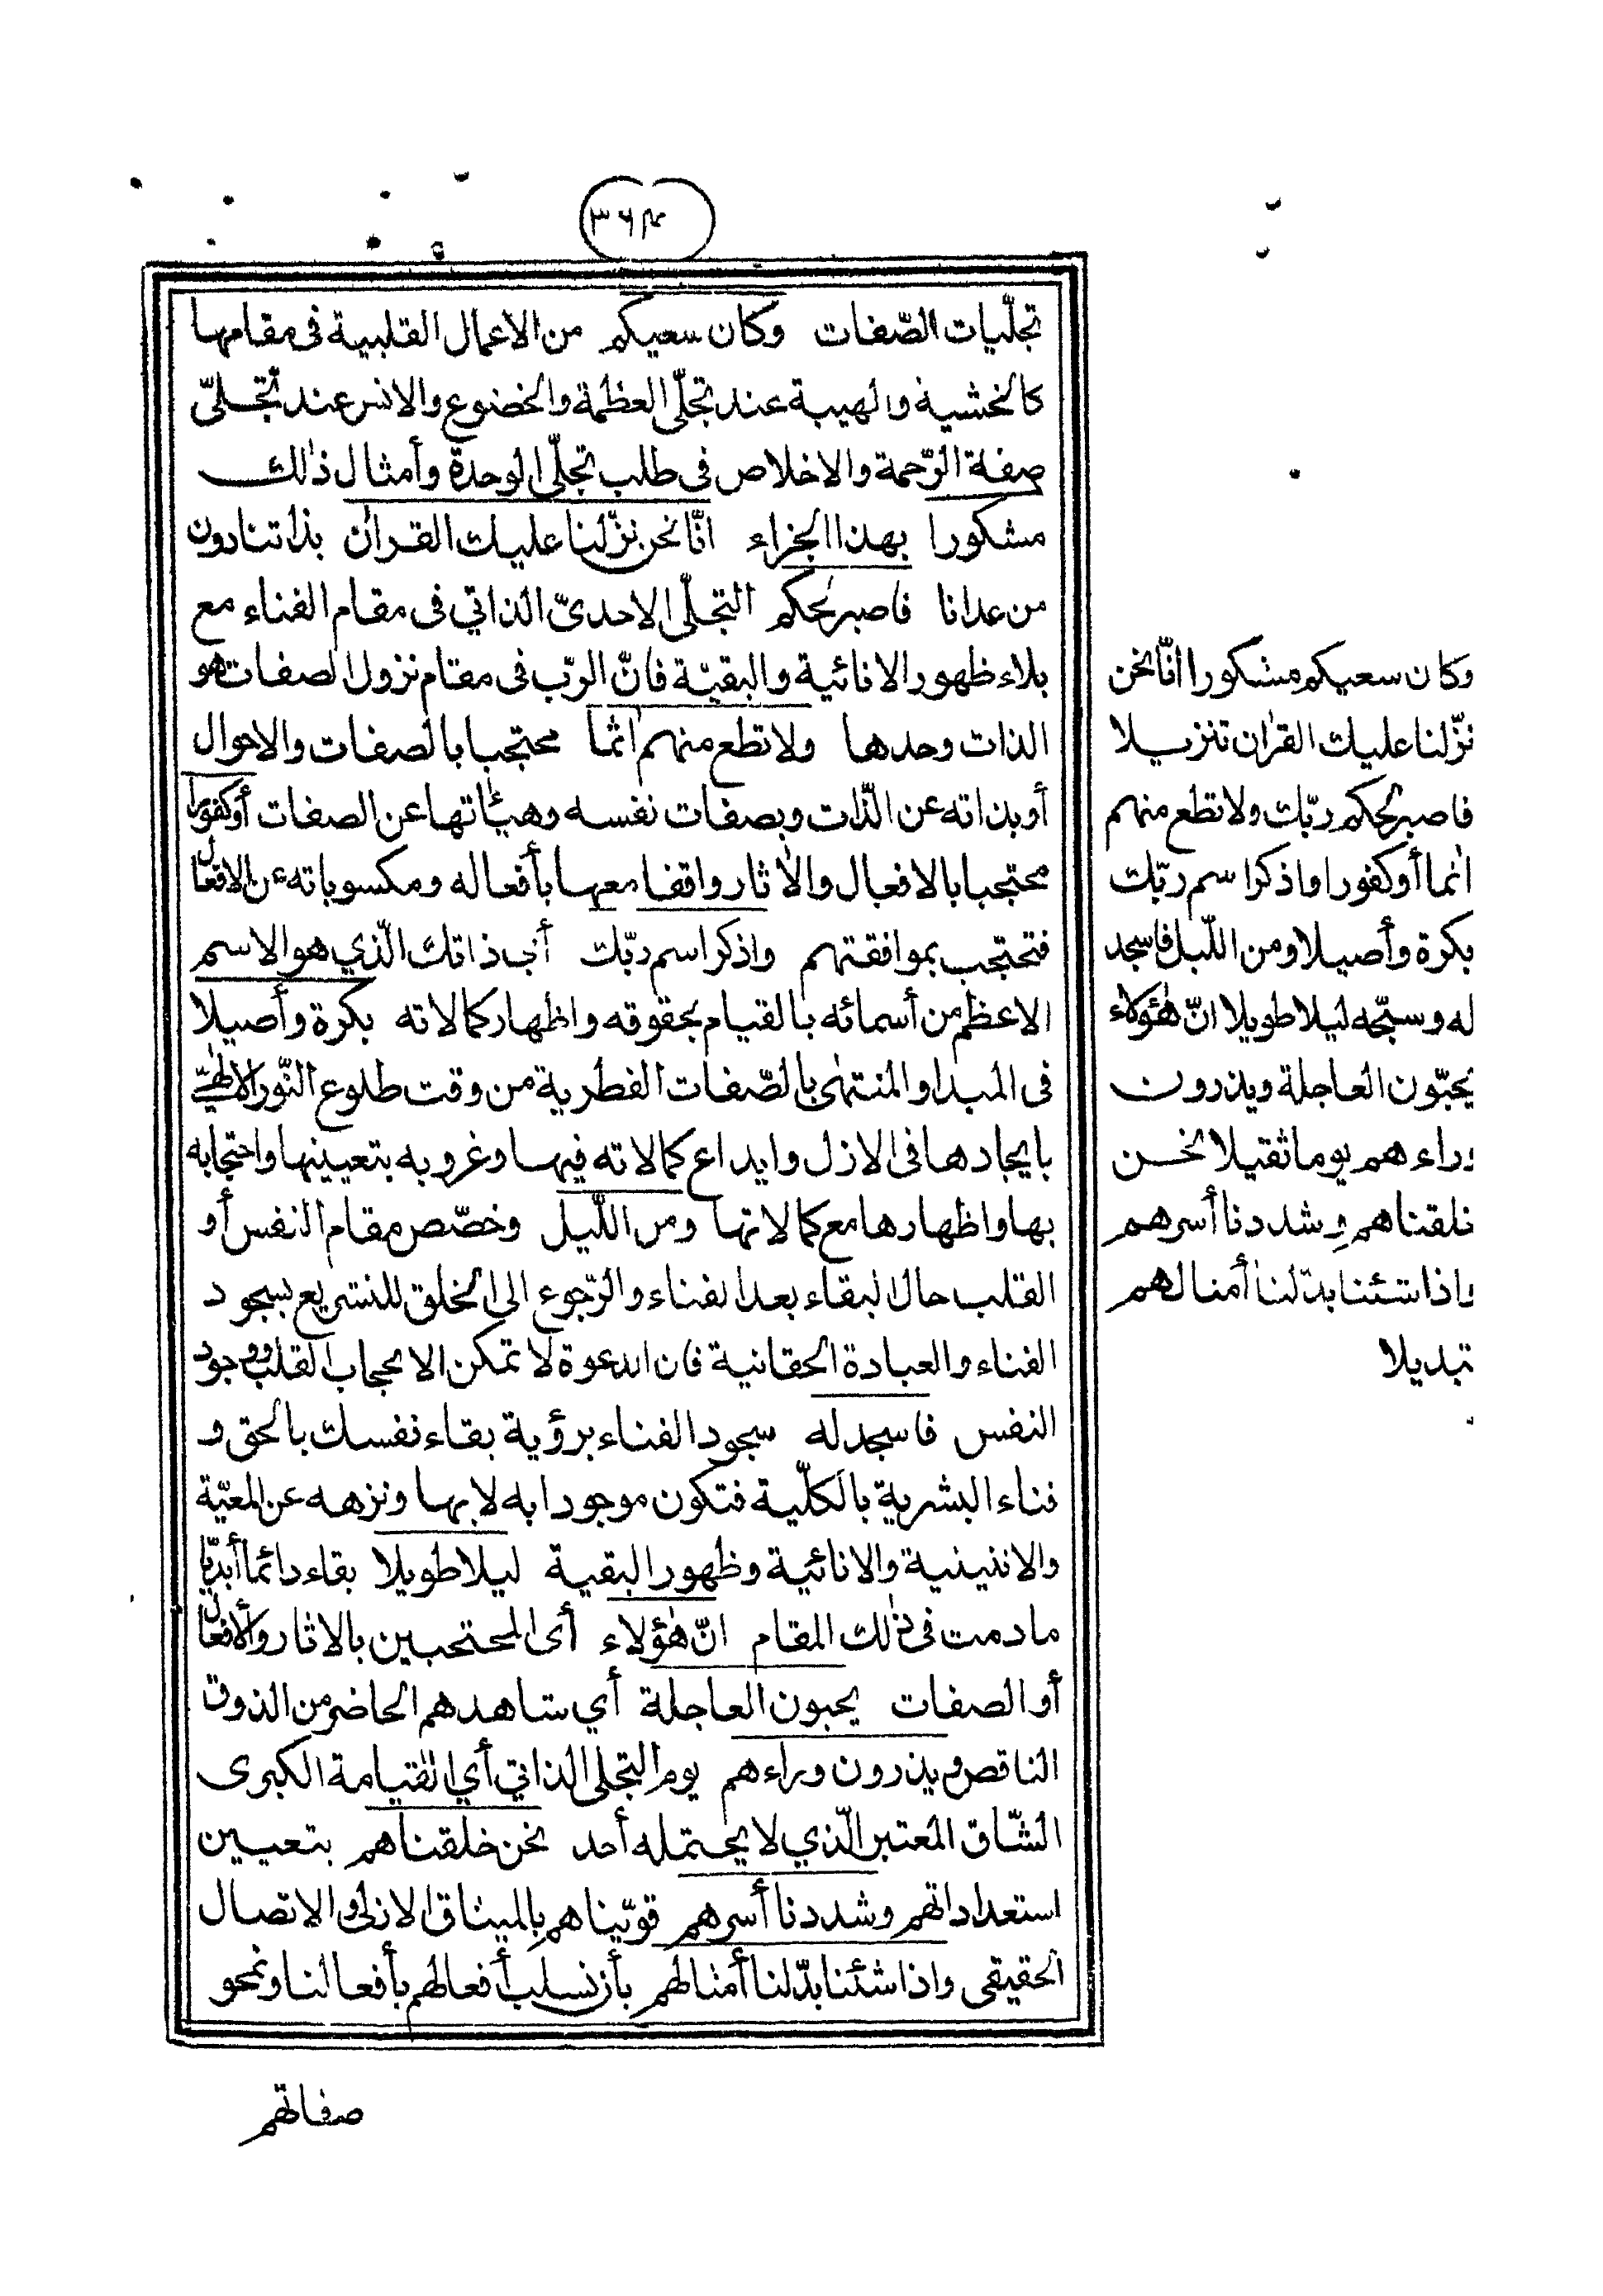 ٣٦٤
تجلّيات الصّفات وكان سعيكم من الاعمال القلبية فى مقامها
كالخشية والهيبة عند تجلّى العظمة والخضوع والانس عند تجلّى
صفة الرّحمة والاخلاص فى طلب تجلّى الوحدة وأمثال ذٰلك
مشكورا بهذا الجزاء انّا نحن نزّلنا عليك القرآن بذاتنا دون
من عدانا فاصبر لحكم التجلّى الاحدىّ الذاتي فى مقام الفناء مع
بلاء ظهور الانائية والبقيّة فانّ الرّب فى مقام نزول الصفات هو
الذات وحدها ولا تطع منهم اٰثما محتجبا بالصفات والاحوال
أو بذاته عن الذّات وبصفات نفسه وهيئاتها عن الصفات أو كفورا
محتجبا بالافعال والاٰثار واقفا معها بأفعاله ومكسوباته عن الافعال
فتحتجب بموافقتهم واذكر اسم ربّك أي ذاتك الّذي هو الاسم
الاعظم من أسمائه بالقيام بحقوقه واظهار كمالاته بكرة وأصيلا
فى المبدا والمنتهىٰ بالصّفات الفطرية من وقت طلوع النّور الالٰهيّ
بايجادها فى الازل وايداع كمالاته فيها وغروبه بتعيينها واحتجابه
بها واظهارها مع كمالاتها ومن اللّيل وخصّص مقام النفس أو
القلب حال البقاء بعد الفناء والرّجوع الى الخلق للتشريع بسجود
الفناء والعبادة الحقانية فان الدعوة لا تمكن الا بحجاب القلب ووجود
النفس فاسجد له سجود الفناء برؤية بقاء نفسك بالحق و
فناء البشرية بالكلّية فتكون موجودا به لا بها ونزهه عن المعيّة
والاثنينية والانائية وظهور البقية ليلا طويلا بقاء دائما أبديّا
ما دمت فى ذٰلك المقام انّ هٰؤلاء أى المحتجبين بالاثار والافعال
أو الصفات يحبون العاجلة أي شاهدهم الحاضر من الذوق
الناقص ويذرون وراءهم يوم التجلى الذاتي أي القيامة الكبرى
الشّاق المعتبر الّذي لا يحتمله أحد نحن خلقناهم بتعيين
استعداداتهم وشددنا أسرهم قوّيناهم بالميثاق الازلى والاتصال
الحقيقى واذا شئنا بدّلنا أمثالهم بأن نسلب أفعالهم بأفعالنا ونمحو
صفاتهم
وكان سعيكم مشكورا انّا نحن
نزّلنا عليك القراٰن تنزيلا
فاصبر لحكم ربّك ولا تطع منهم
اٰثما أو كفورا واذكر اسم ربّك
بكرة وأصيلا ومن اللّيل فاسجد
له وسبّحه ليلا طويلا انّ هٰؤلاء
يحبّون العاجلة ويذرون
وراءهم يوما ثقيلا نحن
خلقناهم وشددنا أسرهم
واذا شئنا بدّلنا أمثالهم
تبديلا